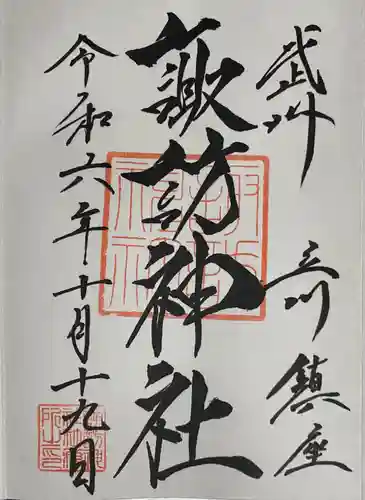 武州　立川　鎮座
諏訪神社
令和六年十月十九日